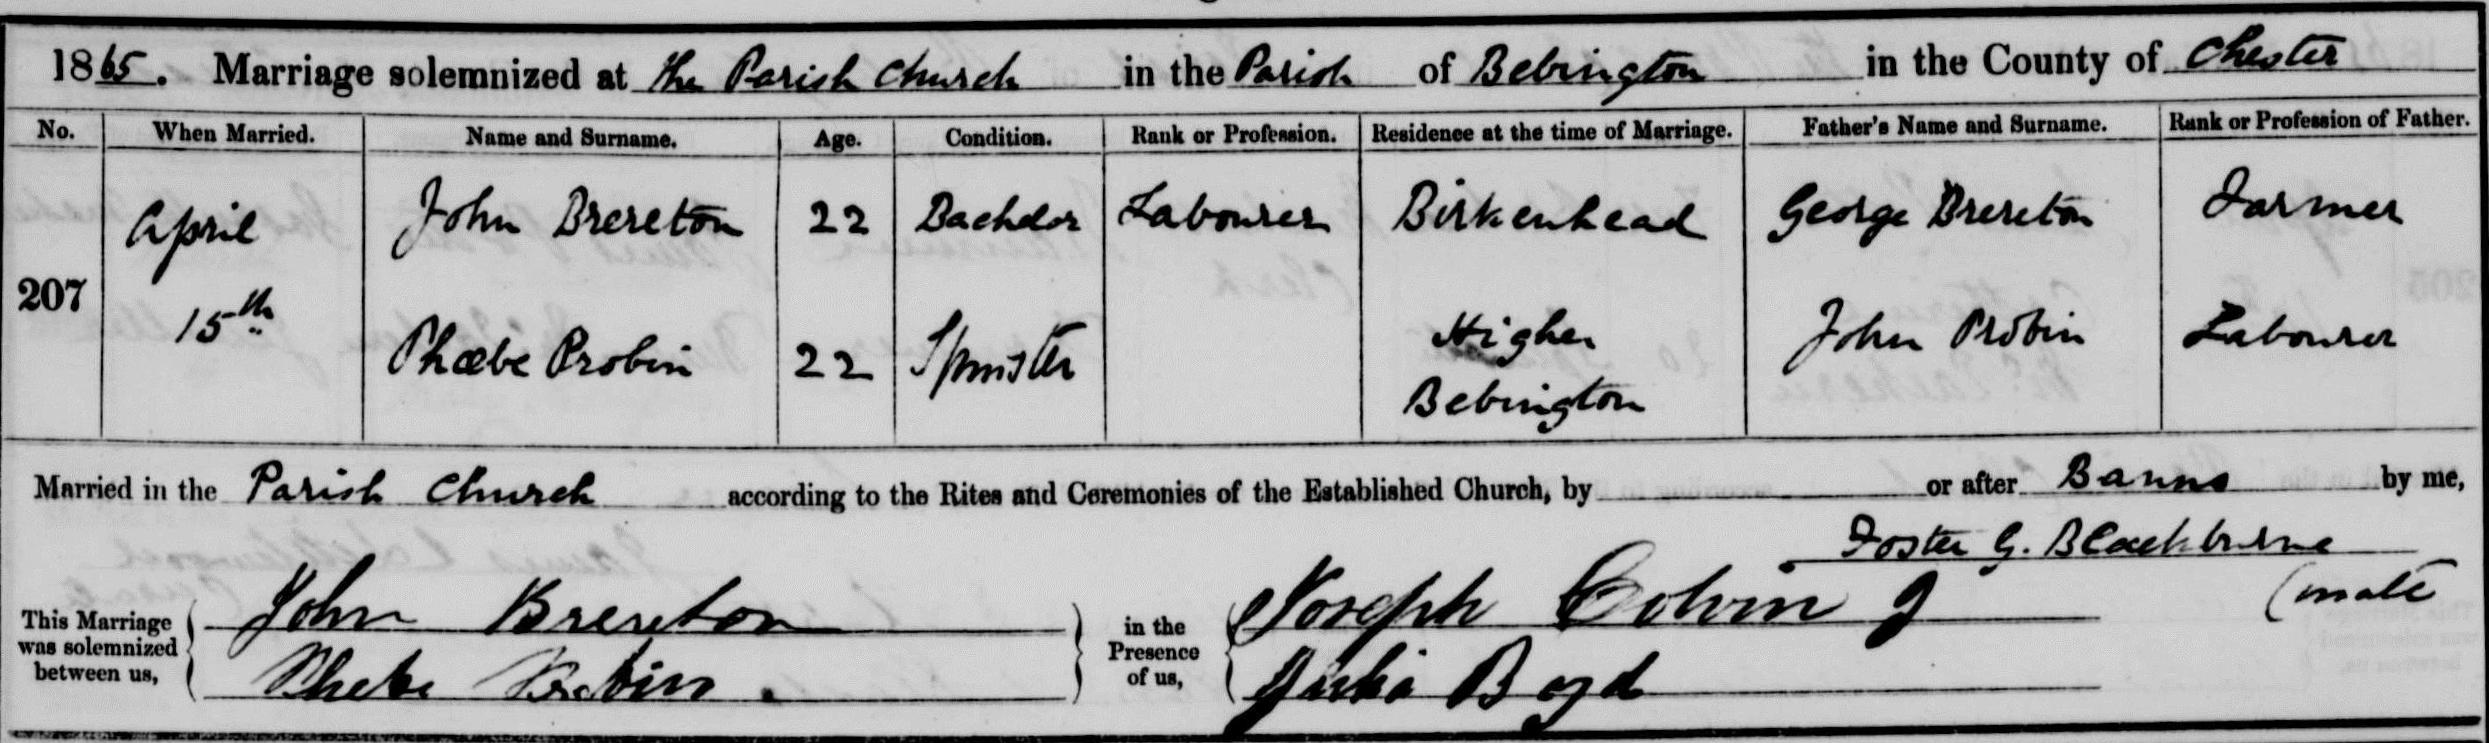 1865. Marriage solemnized at the Parish Church in the Parish of Bebington in the County of Chester
No. When Married. Name and Surname. Age. Condition. Rank or Profession. Residence at the time of Marriage. Father's Name and Surname. Rank or Profession of Father.
207 April 15th John Brereton 22 Bachelor Labourer Birkenhead George Brereton Farmer
Phœbe Probin 22 Spinster Higher Bebington John Probin Labourer
Married in the Parish Church according to the Rites and Ceremonies of the Established Church, by or after Banns by me,
Foster G. Blackburne
This Marriage was solemnized between us, John Brereton in the Presence of us, Joseph Colvin
Phebe Probin. Julia Boyd